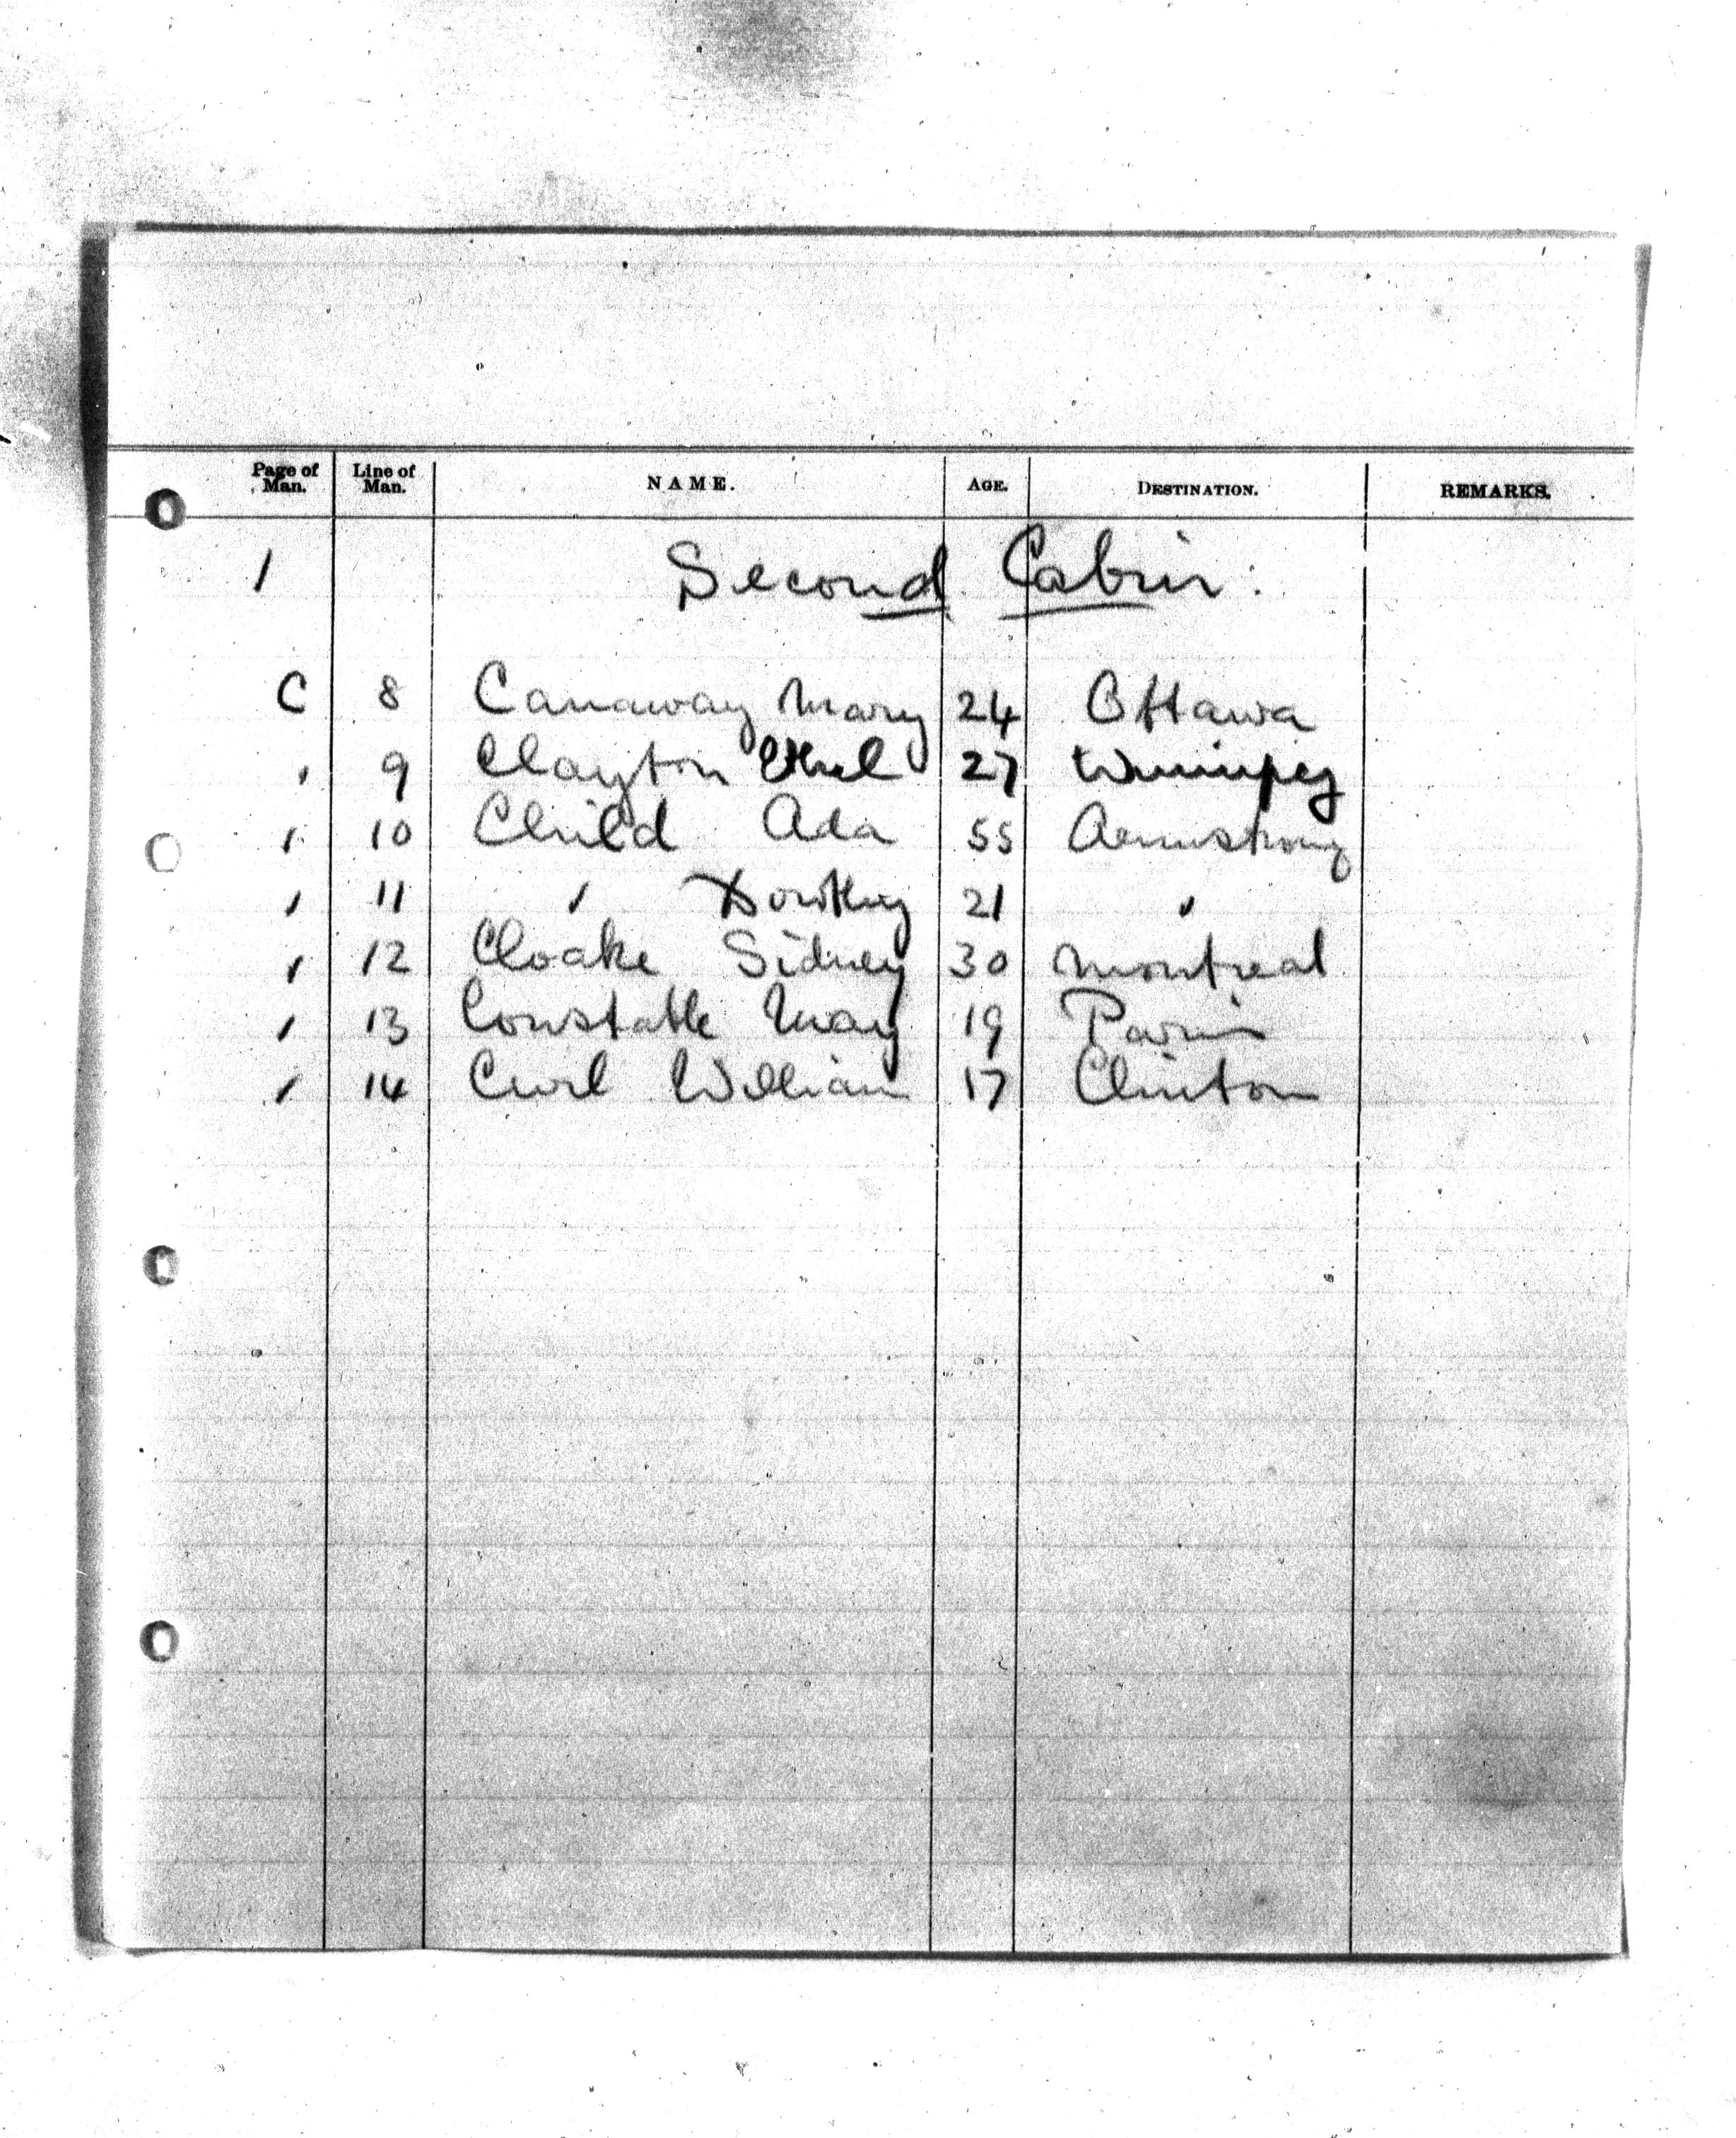 Page of Man. Line of Man. NAME. AGE. DESTINATION. REMARKS.
1 Second Cabin
C 8 Canaway Mary 24 Ottawa
" 9 Clayton Ethel 27 Winnipeg
" 10 Child Ada 55 Armstrong
" 11 " Dorothy 21 "
" 12 Cloake Sidney 30 Montreal
" 13 Constable May 19 Paris
" 14 Curl William 17 Clinton